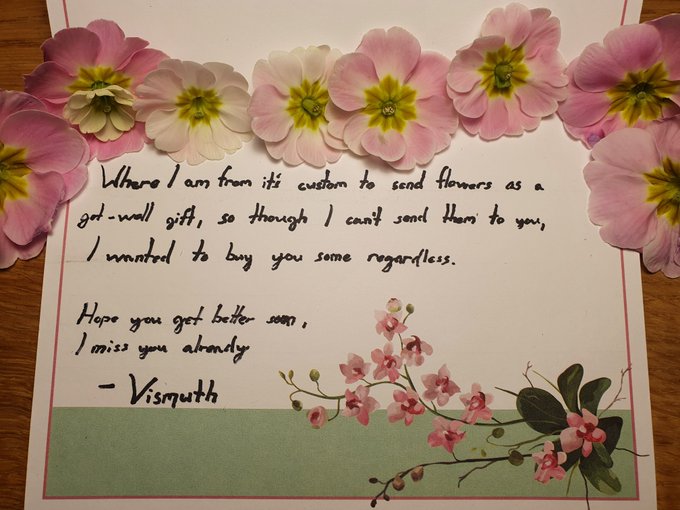 Where I am from it's custom to send flowers as a
get-well gift, so though I can't send them to you,
I wanted to buy you some regardless.
Hope you get better soon,
I miss you already
- Vismuth